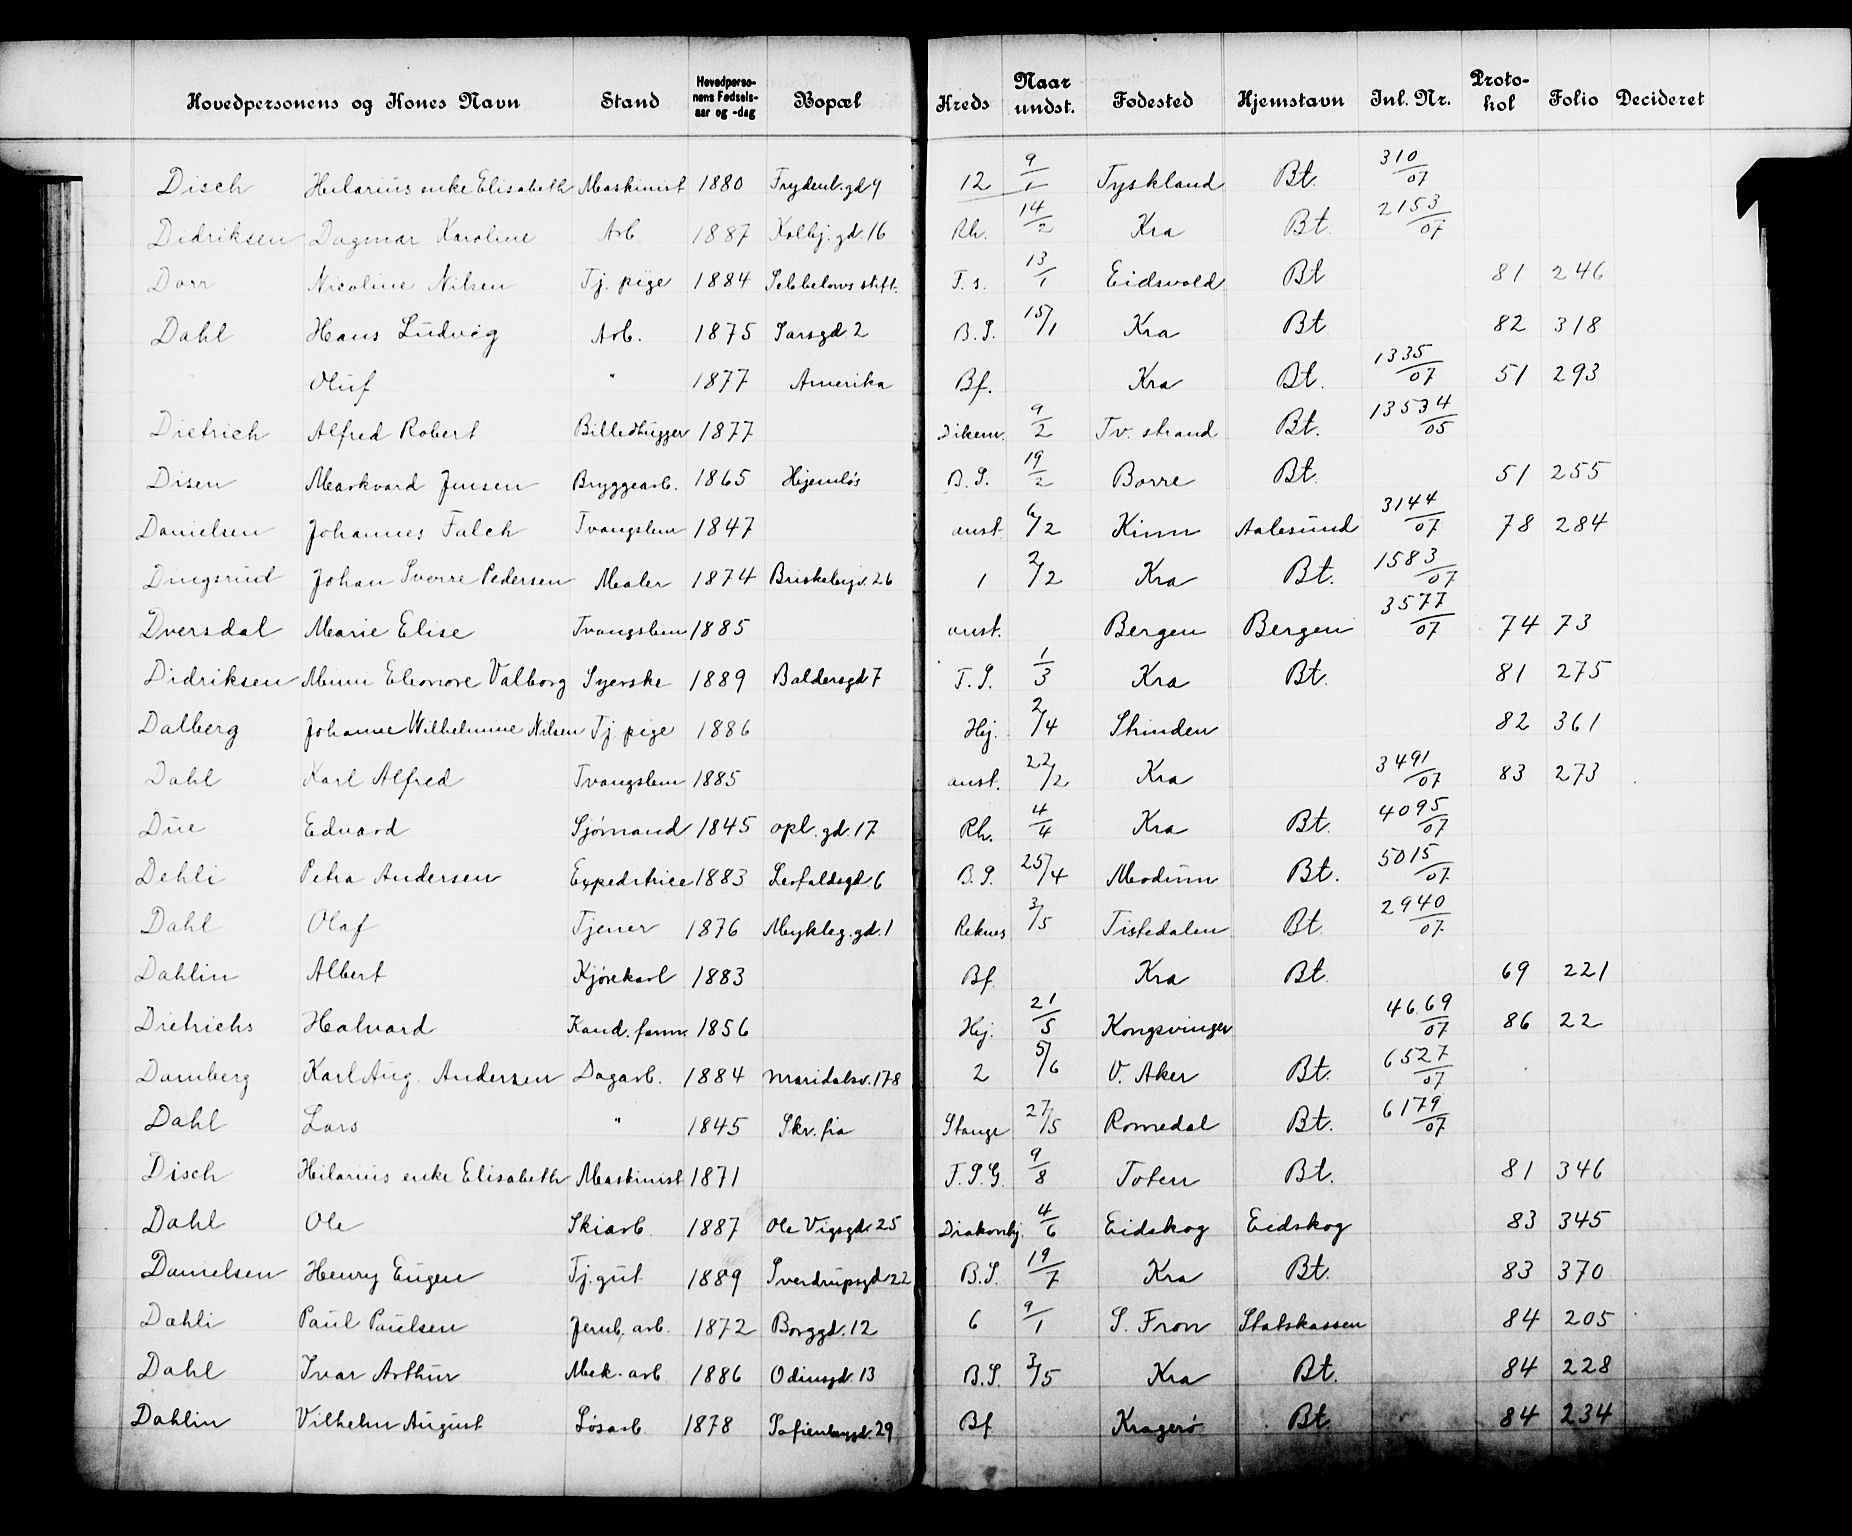 Hovedpersonens og Kones Navn Stand Hovedpersonens Fødselsaar og -dag Bopæl Kreds Naar undst. Fødested Hjemstavn Inl. Nr. Protokol Folio Decideret
Disch Hilarius enke Elisabeth Maskinist 1880 Frydenl. gd 9 12 9/1 Tyskland Bt. 310/07
Didriksen Dagmar Karoline Arb 1887 Kolbj. gd. 16 Rh. 14/2 Kra Bt. 2153/07
Dorr Nicoline Nilsen Tj. pige 1884 Sebbelows stift. F. s. 13/1 Eidsvold Bt 81 246
Dahl Hans Ludvig Arb. 1875 Sarsgd. 2 B. S. 15/1 Kra Bt 82 318
" Oluf " 1877 Amerika Bf. Kra Bt. 1335/07 51 293
Dietrich Alfred Robert Billedhugger 1877 Dikem. 9/2 Tv. strand Bt. 13534/05
Disen Markvard Jensen Bryggearb. 1865 Hjemløs B. S. 19/2 Borre Bt. 51 255
Danielsen Johannes Falch Tvangslem 1847 anst 6/2 Kinn Aalesund 3144/07 78 284
Dingsrud Johan Sverre Pedersen Maler 1874 Briskebyv. 26 1 2/2 Kra Bt. 1583/07
Dversdal Marie Elise Tvangslem 1885 anst. Bergen Bergen 3577/07 74 73
Didriksen Mimi Eleonore Valborg Syerske 1889 Baldersgd 7 F. S. 1/3 Kra Bt. 81 275
Dalberg Johanne Wilhelmine Nilsen Tj. pige 1886 Hej. 2/4 Skinden 82 361
Dahl Karl Alfred Tvangslem 1885 anst. 22/2 Kra 3491/07 83 273
Due Edvard Sjømand 1845 opl. gd. 17 Rh. 4/4 Kra Bt. 4095/07
Dehli Petra Andersen Expeditrice 1883 Leofaldsgd 6 B. S. 25/4 Modum Bt. 5015/07
Dahl Olaf Tjener 1876 Mykleg. gd. 1 Reknes 3/5 Tistedalen Bt. 2940/07
Dahlin Albert Kjørekarl 1883 Bf. Kra Bt. 69 221
Dietrichs Halvard Kand. farm. 1856 Hej. 21/5 Kongsvinger 4669/07 86 22
Damberg Karl Aug. Andersen Dagarb. 1884 Maridalsv. 178 2 5/6 V. Aker Bt. 6527/07
Dahl Lars " 1845 Skv. fia Stange 27/5 Romedal Bt. 6179/07
Disch Hilarius enke Elisabeth Maskinist 1871 F. S. G. 9/8 Toten Bt. 81 346
Dahl Ole Skiarb. 1887 Ole Vigsgd. 25 Diakonhj. 4/6 Eidskog Eidskog 83 345
Danielsen Henry Eugen Tj. gut 1889 Sverdrupsgd 22 B. S. 19/7 Kra Bt. 83 370
Dæhli Paul Paulsen Jernb. arb. 1872 Borggd. 12 6 9/1 S. Fron Statskassen 84 205
Dahl Ivar Arthur Mek. arb 1886 Odinsgd. 13 B. S. 3/5 Kra Bt. 84 228
Dahlin Vilhelm August Løsarb. 1878 Sofienbergd. 29 Bf. Kragerø Bt. 84 234